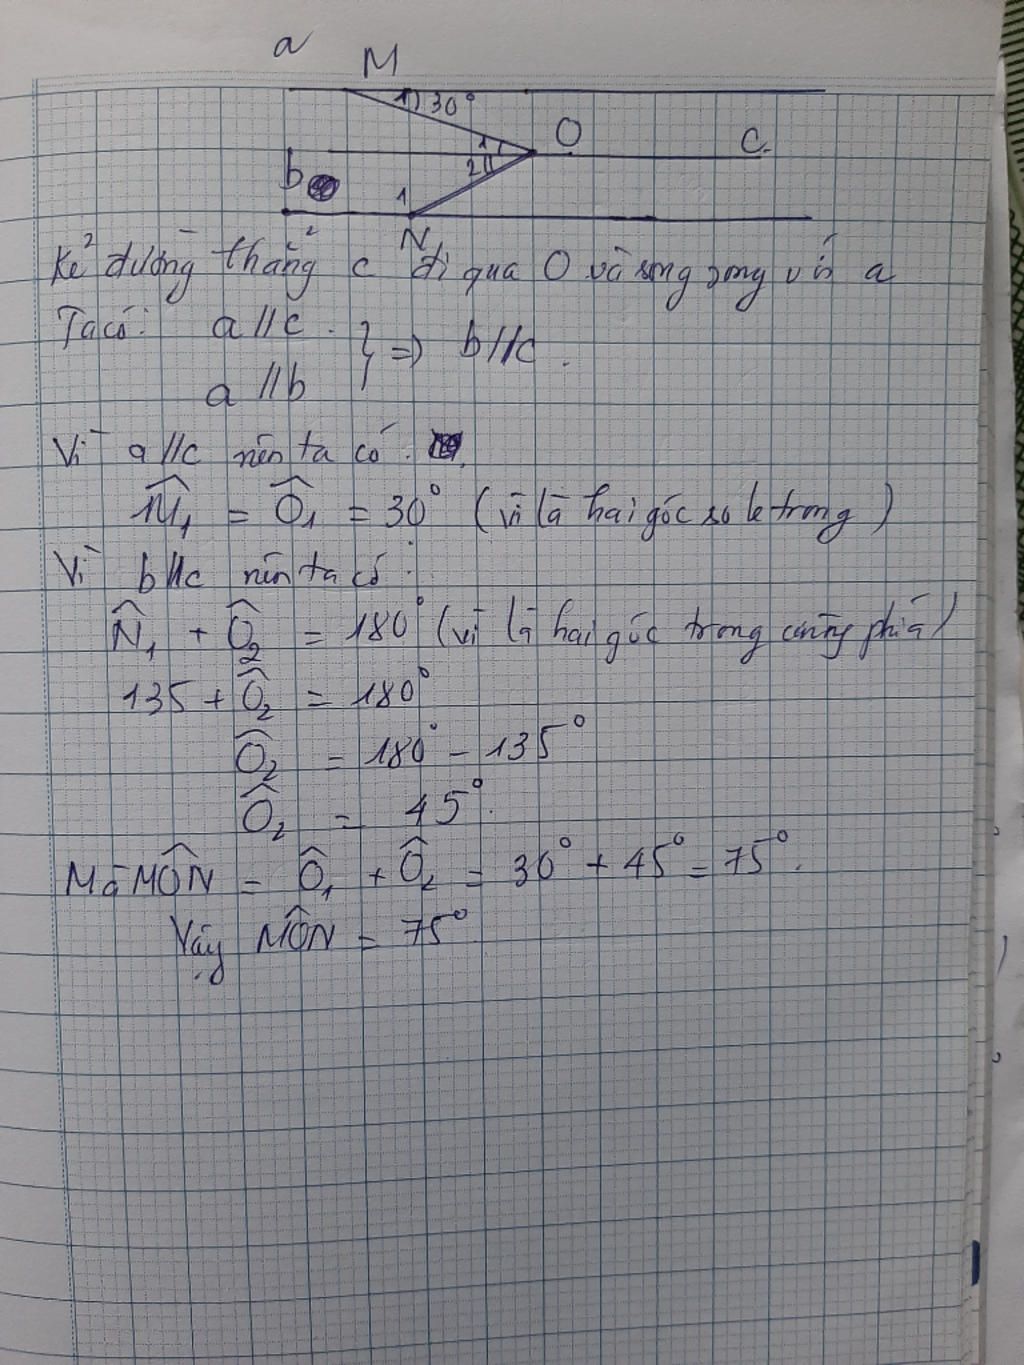 a
M
1 30°
1 O c
2
b
1
N
Kẻ đường thẳng c đi qua O và song song với a
Ta có: a // c
a // b } => b // c.
Vì a // c nên ta có:
M̂₁ = Ô₁ = 30° (vì là hai góc so le trong)
Vì b // c nên ta có:
N̂₁ + Ô₂ = 180° (vì là hai góc trong cùng phía)
135 + Ô₂ = 180°
Ô₂ = 180° - 135°
Ô₂ = 45°.
Mà MÔN = Ô₁ + Ô₂ = 30° + 45° = 75°.
Vậy MÔN = 75°